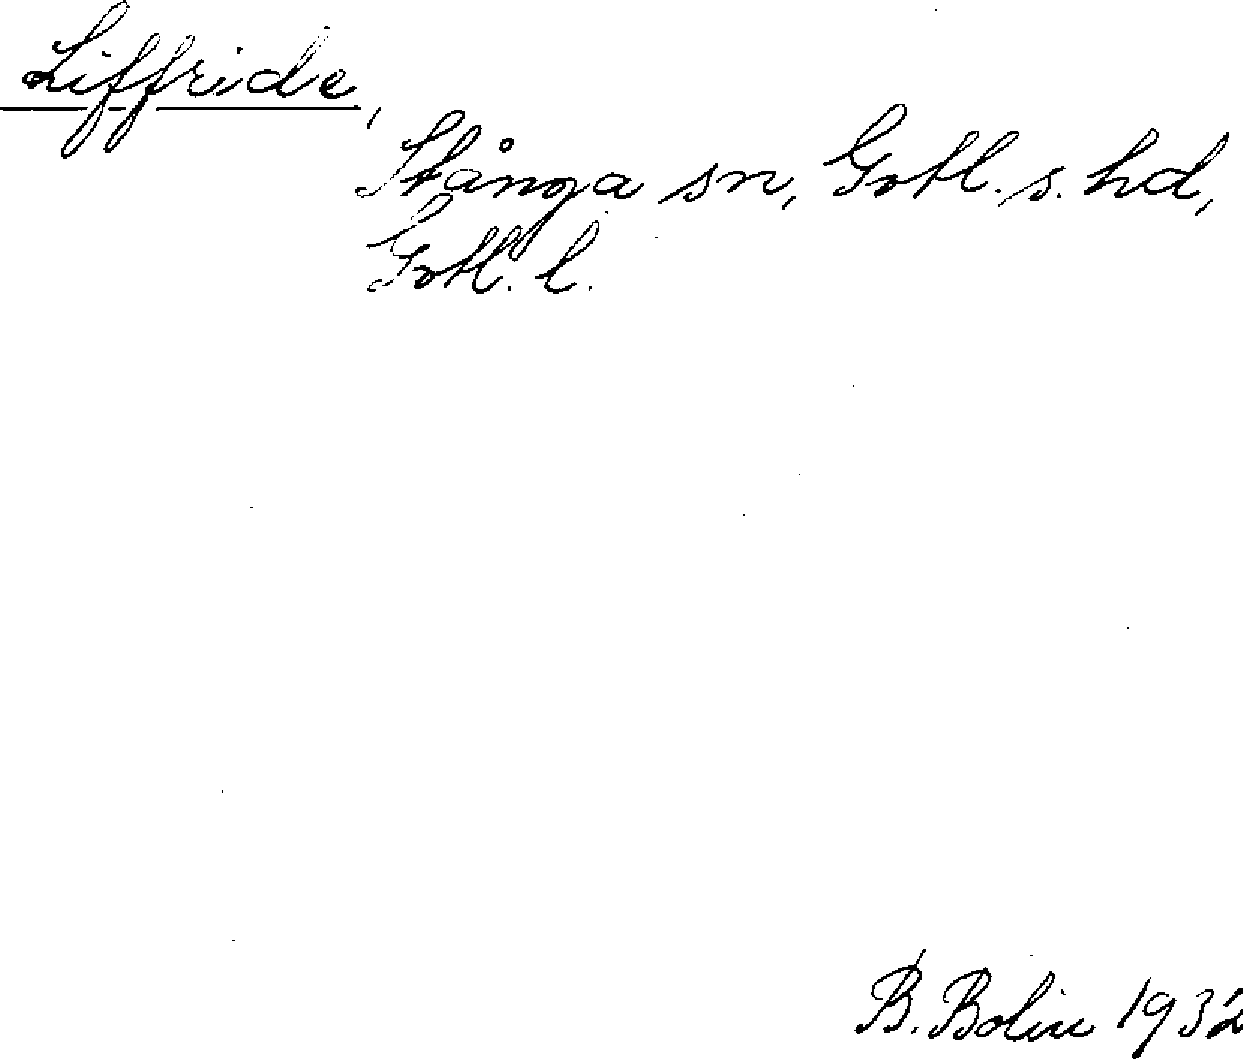 Liffride,
Stånga sn, Gotl. s. hd,
Gotl. l.
B. Bolin 1932